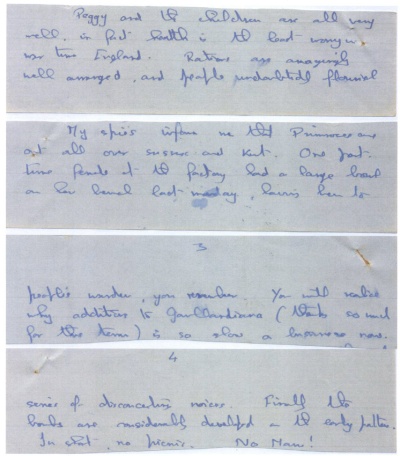 Peggy and the children are all very
well, in fact health is the least worry in
war time England. Rations are amazingly
well arranged, and people undoubtedly flourish
My spies inform me that Primroses are
out all over sussex and Kent. One part
time female at the factory had a large bowl
on her bench last monday,
3
people wonder, you remember You will realise
why additions to (thanks so much
for the term) is so slow a business now.
4
series of disconcerting noises. Finally the
bombs are considerably in the early
In short, no picnic. No Ma'am!